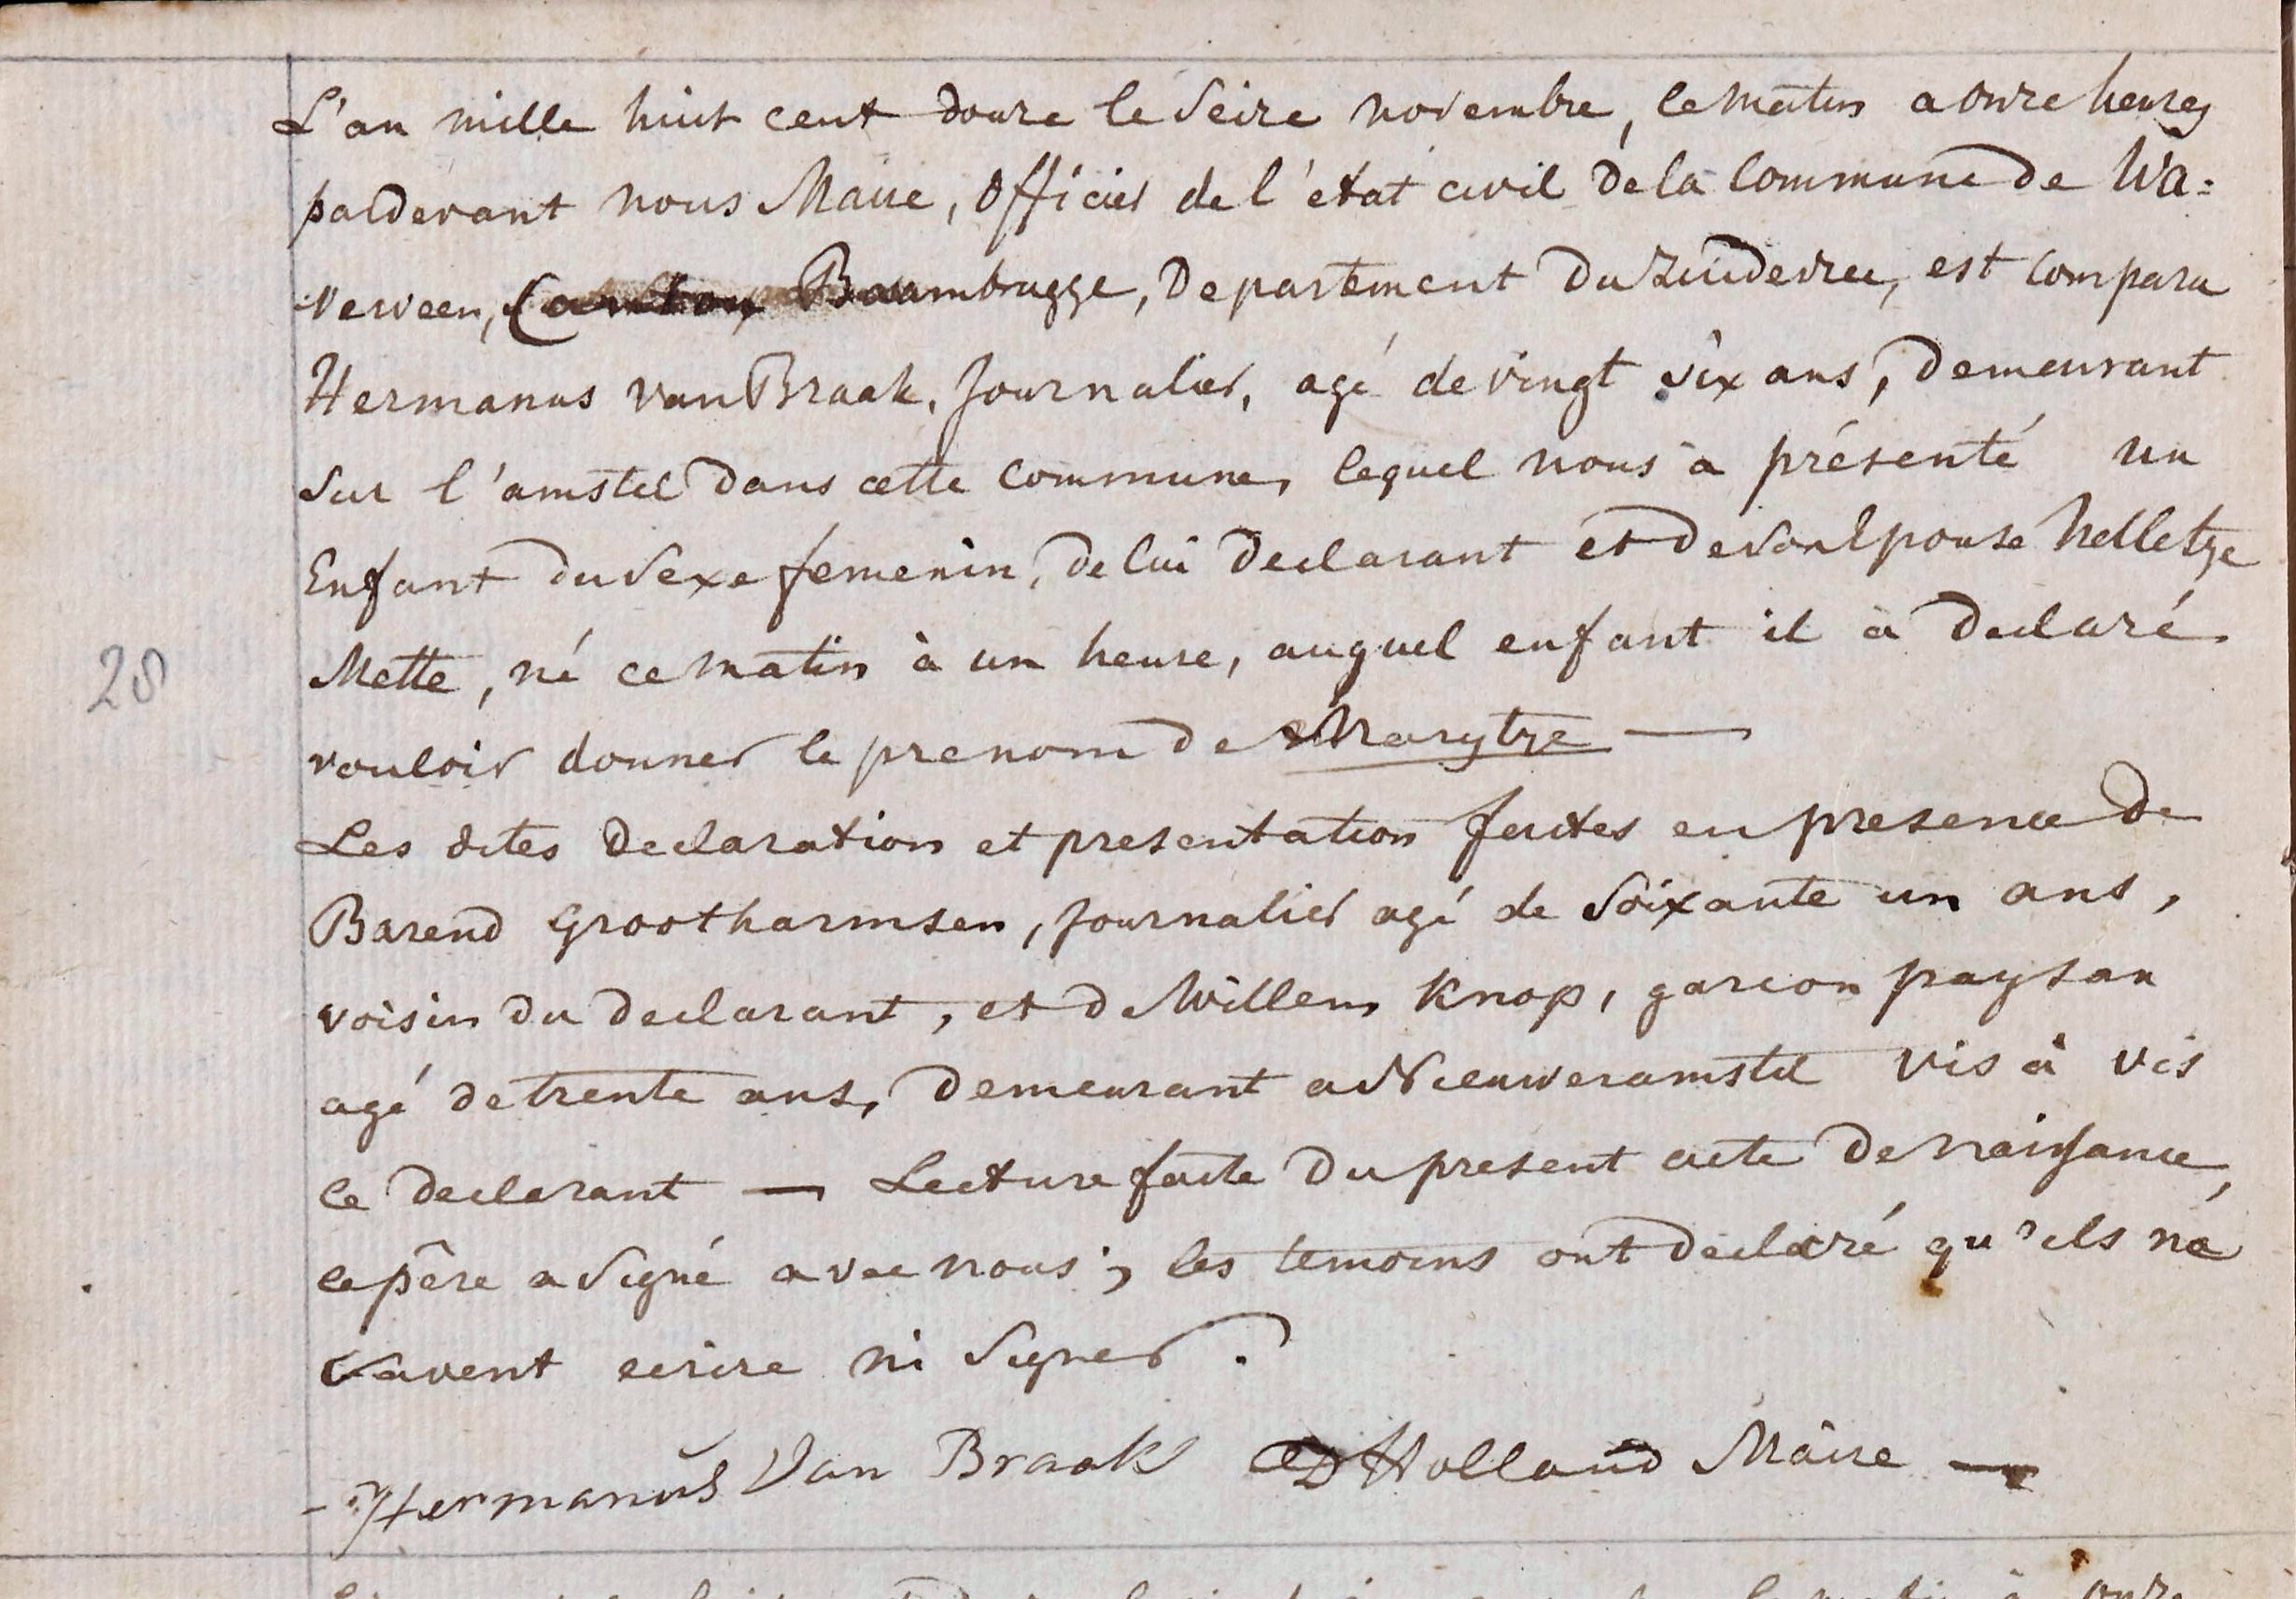 L'an mille huit cent douze le seize novembre, le matin a onze heures
pardevant nous Maire, Officier de l'état civil de la Commune de Wa=
verveen, Canton Baambrugge, Departement du Zuiderzee, est comparu
Hermanus van Braak, Journalier, agé de vingt six ans, demeurant
sur l'amstel dans cette commune, lequel nous à présenté un
Enfant du sexe femenin, de lui declarant et de son Epouse Nelletze
Mette, né ce matin à un heure, auquel enfant il à declaré
vouloir donner le prenom de Marytze —
Les dites declaration et presentation faites en presence de
Barend Grootharmsen, journalier agé de soixante un ans,
voisin du declarant, et de Willem Knop, garcon paysan
agé de trente ans, demeurant a Nieuweramstel vis à vis
le declarant — Lecture faite du present acte de naissance,
le père a signé avec nous; les temoins ont declaré qu'ils ne
savent ecrire ni signer.
Hermanus Van Braak D Holland Maire —
28